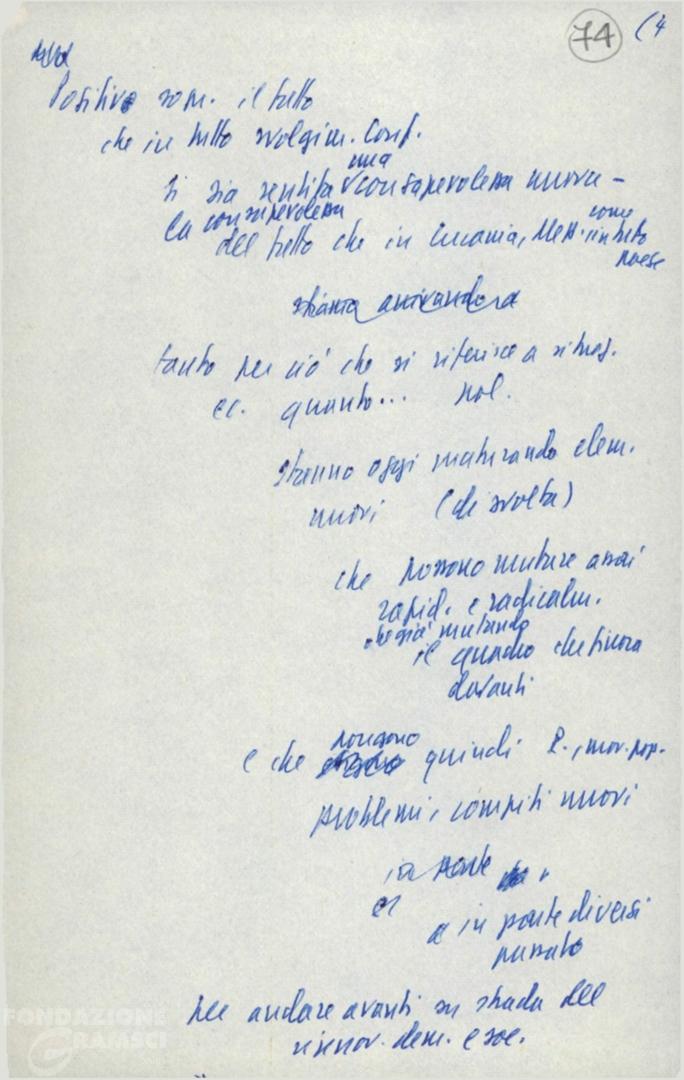 74 (4
Positivo som. il fatto
che in tutto svolgim. Conf.
si sia sentita una consapevolezza nuova -
la consapevolezza
del fatto che in Lucania, Mezz. come in tutto
paese
stiamo arrivando a
tanto per ciò che si riferisce a situaz.
ec. quanto... pol.
stanno oggi maturando elem.
nuovi (di svolta)
che possono mutare assai
rapid. e radicalm.
già mutando
il quadro che finora
davanti
e che pongono quindi P., mov. pop.
problemi, compiti nuovi
in parte
e in parte diversi
passato
per andare avanti su strada del
rinnov. dem. e soc.
FONDAZIONE
GRAMSCI